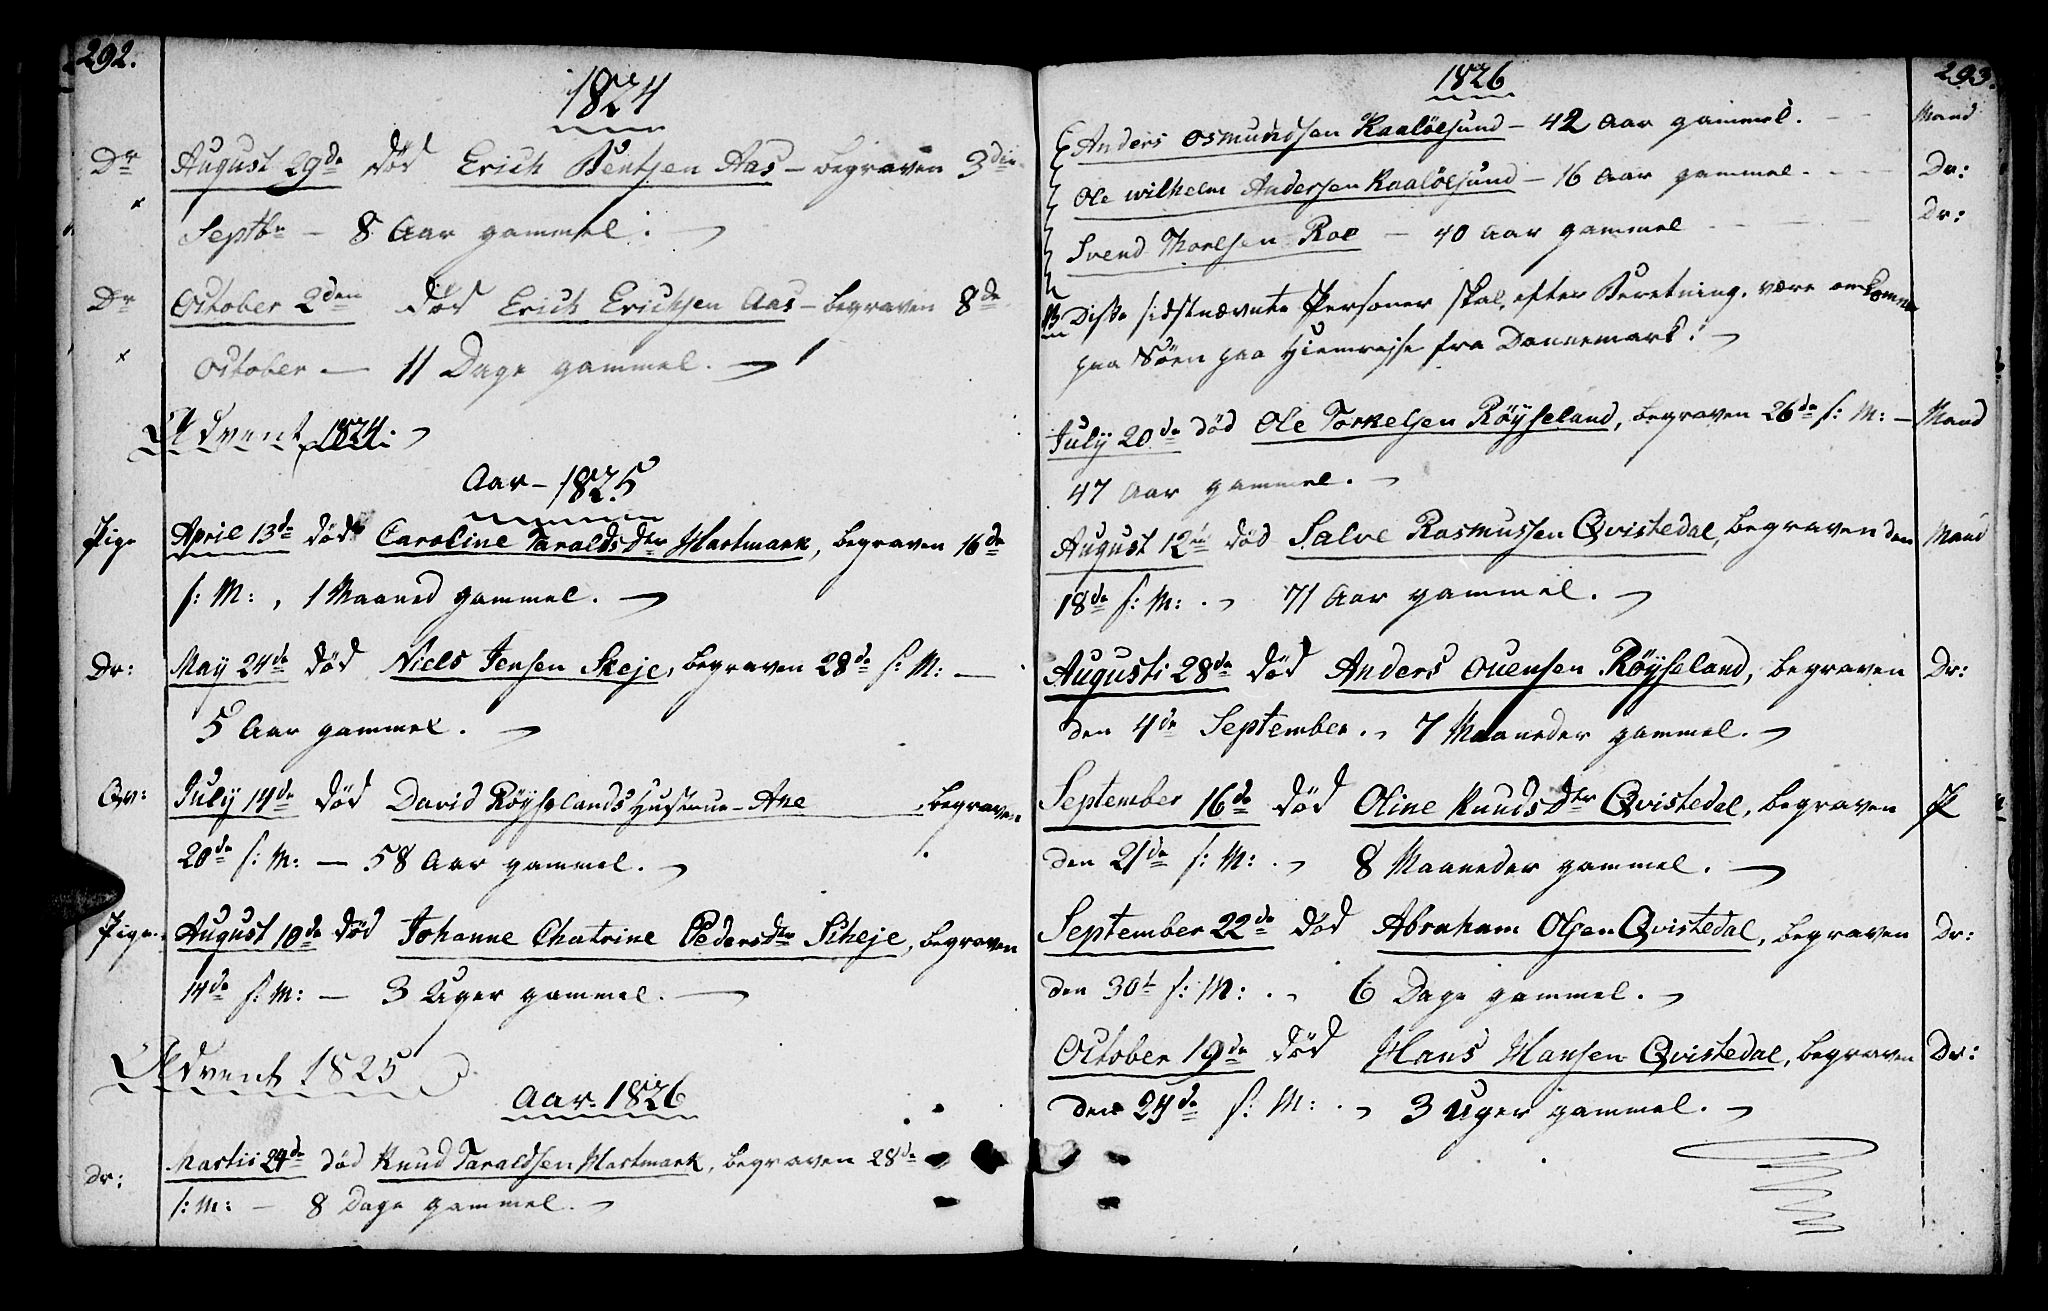 292.
1824
Dr August 29de død Erich Bentsen Aas - begraven 3die
Septbr - 8 Aar gammel.
Dr October 2den død Erich Erichsen Aas - begraven 8de
October - 11 Dage gammel.
Advent 1824.
Aar - 1825
Pige April 13de død Caroline Taralds Dtr Hartmark, begraven 16de
s: M:, 1 Maaned gammel.
Dr: May 24de død Niels Jensen Skeje, begraven 28de s: M: -
5 Aar gammel.
Qv: July 14de død David Röyselands Hustrue - Ane begraven
20de s: M: - 58 Aar gammel.
Pige August 10de død Johanne Chatrine Pedersdtr Scheje, begraven
14de s: M: - 3 Uger gammel.
Advent 1825
Aar 1826
Dr: Martii 24de død Knud Taraldsen Hartmark, begraven 28de
s: M: - 8 Dage gammel.
293.
1826
Anders Osmundsen Kaalöesund - 42 Aar gammel. - - Mand
Ole Wilhelm Andersen Kaalöesund - 16 Aar gammel. - - Dr:
Svend Thorelsen Roe - 40 Aar gammel - - - Dr:
NB Disse sidstnævnte Personer skal, efter Beretning, være omkomne
paa Söen paa Hiemrejse fra Dannemark.
July 20de død Ole Torkelsen Röyseland, begraven 26de s: M: - Mand
47 Aar gammel.
August 12te død Salve Rasmussen Qvistedal, begraven den Mand
18de s: M: 71 Aar gammel.
Augusti 28de død Anders Ouensen Röyseland, begraven Dr:
den 4de September. 7 Maaneder gammel.
September 16de død Oline Knuds Dtr Qvistedal, begraven P
den 21de s: M: 8 Maaneder gammel.
September 22de død Abraham Olsen Qvistedal, begraven Dr:
den 30te s: M: 6 Dage gammel.
October 19de død Hans Hansen Qvistedal, begraven Dr:
den 24de s: M: 3 Uger gammel.